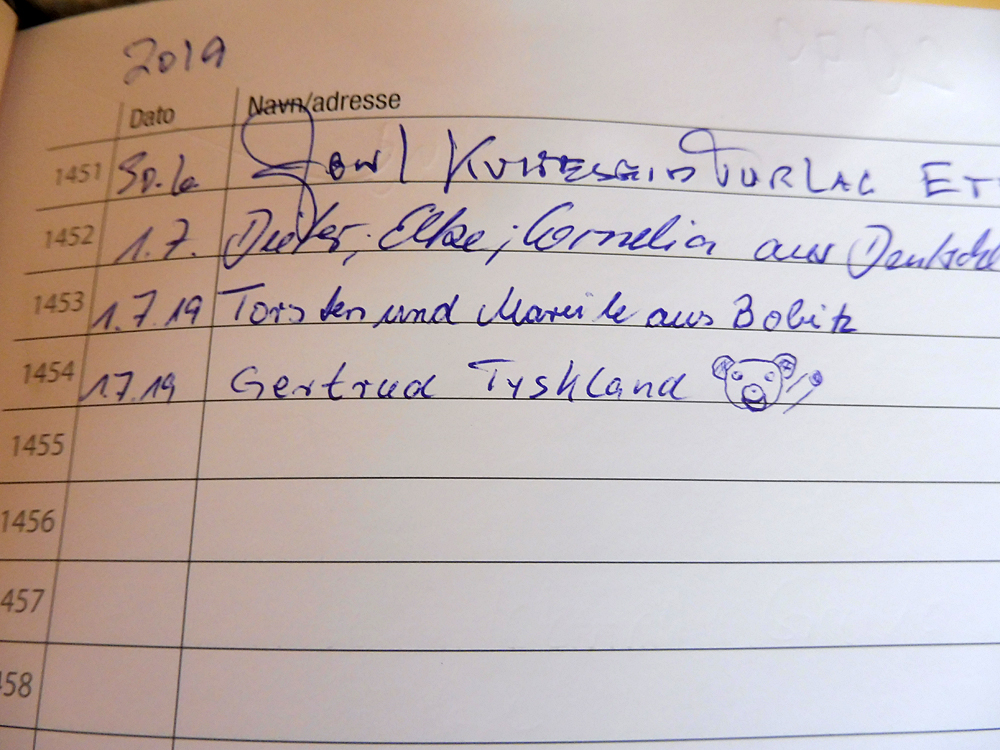 2019
Dato Navn/adresse
1451 30.6.
1452 1.7. Dieter, Elke, Cornelia aus
1453 1.7.19 Torsten und Mareile aus Bobitz
1454 1.7.19 Gertrud Tyskland
1455
1456
457
58